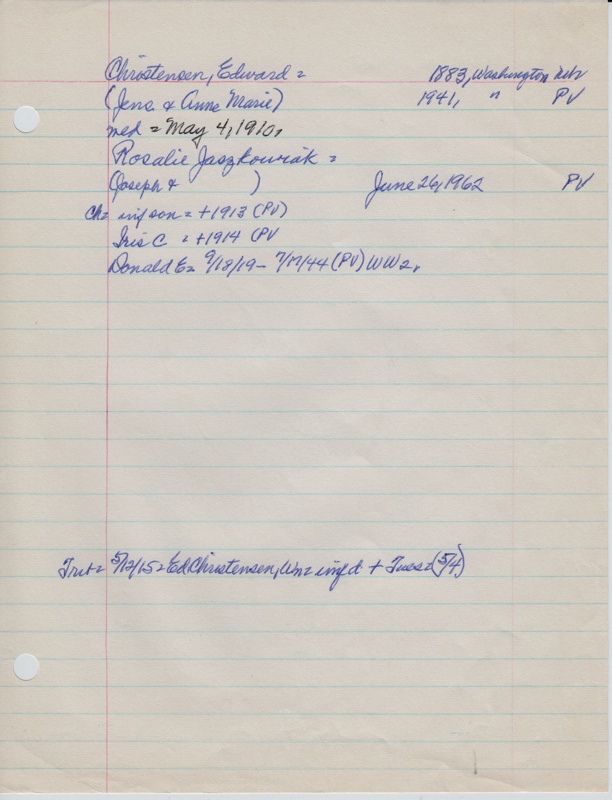 Christensen, Edward = 1883, Washington Neb
(Jens & Anne Marie) 1941, " PV
med = May 4, 1910,
Rosalie Jaszkowiak =
(Joseph & ) June 26, 1962 PV
Ch= inf son = +1913 (PV)
Iris C = +1914 PV
Donald E= 9/18/19 - 7/17/44 (PV) WW2,
Trib= 5/12/15 = Ed Christensen, Wn= inf d + Tues= (5/4)